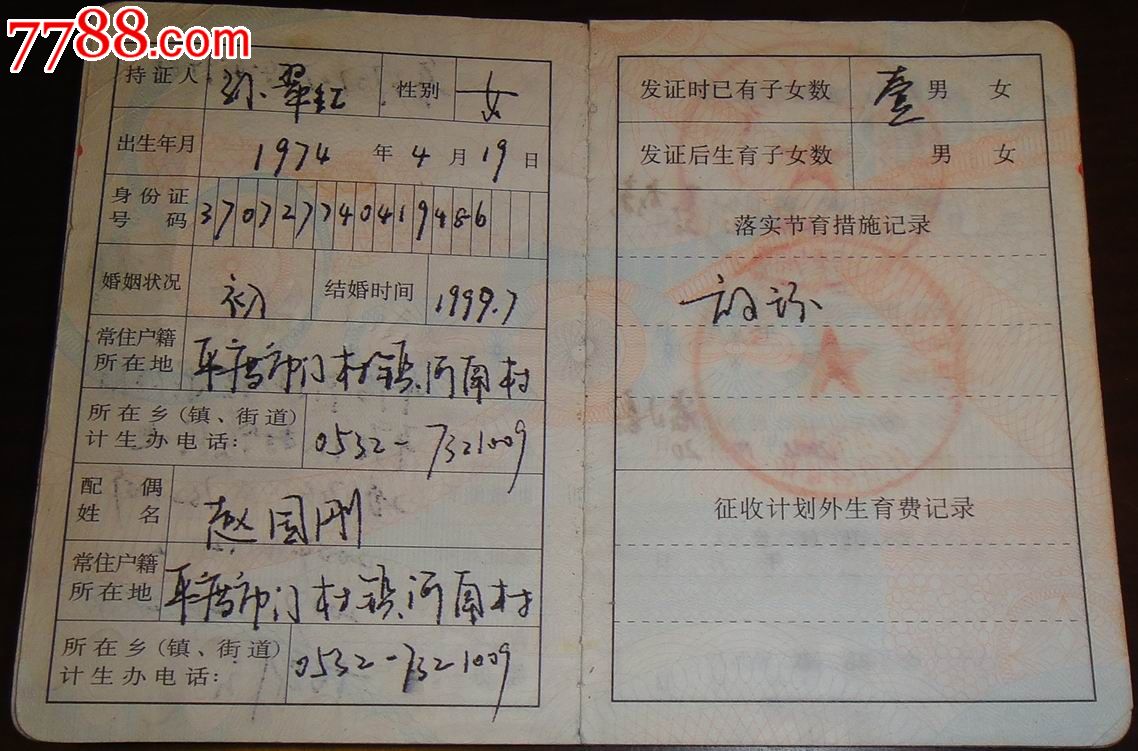 7788.com
持证人 翠红 性别 女
出生年月 1974 年 4 月 19 日
身份证号码 370727740419486
婚姻状况 初 结婚时间 1999.7
常住户籍所在地 平度市门村镇河南村
所在乡(镇、街道)
计生办电话: 0532-7321009
配偶姓名 赵国刚
常住户籍所在地 平度市门村镇河南村
所在乡(镇、街道)
计生办电话: 0532-7321009
发证时已有子女数 壹 男 女
发证后生育子女数 男 女
落实节育措施记录
征收计划外生育费记录